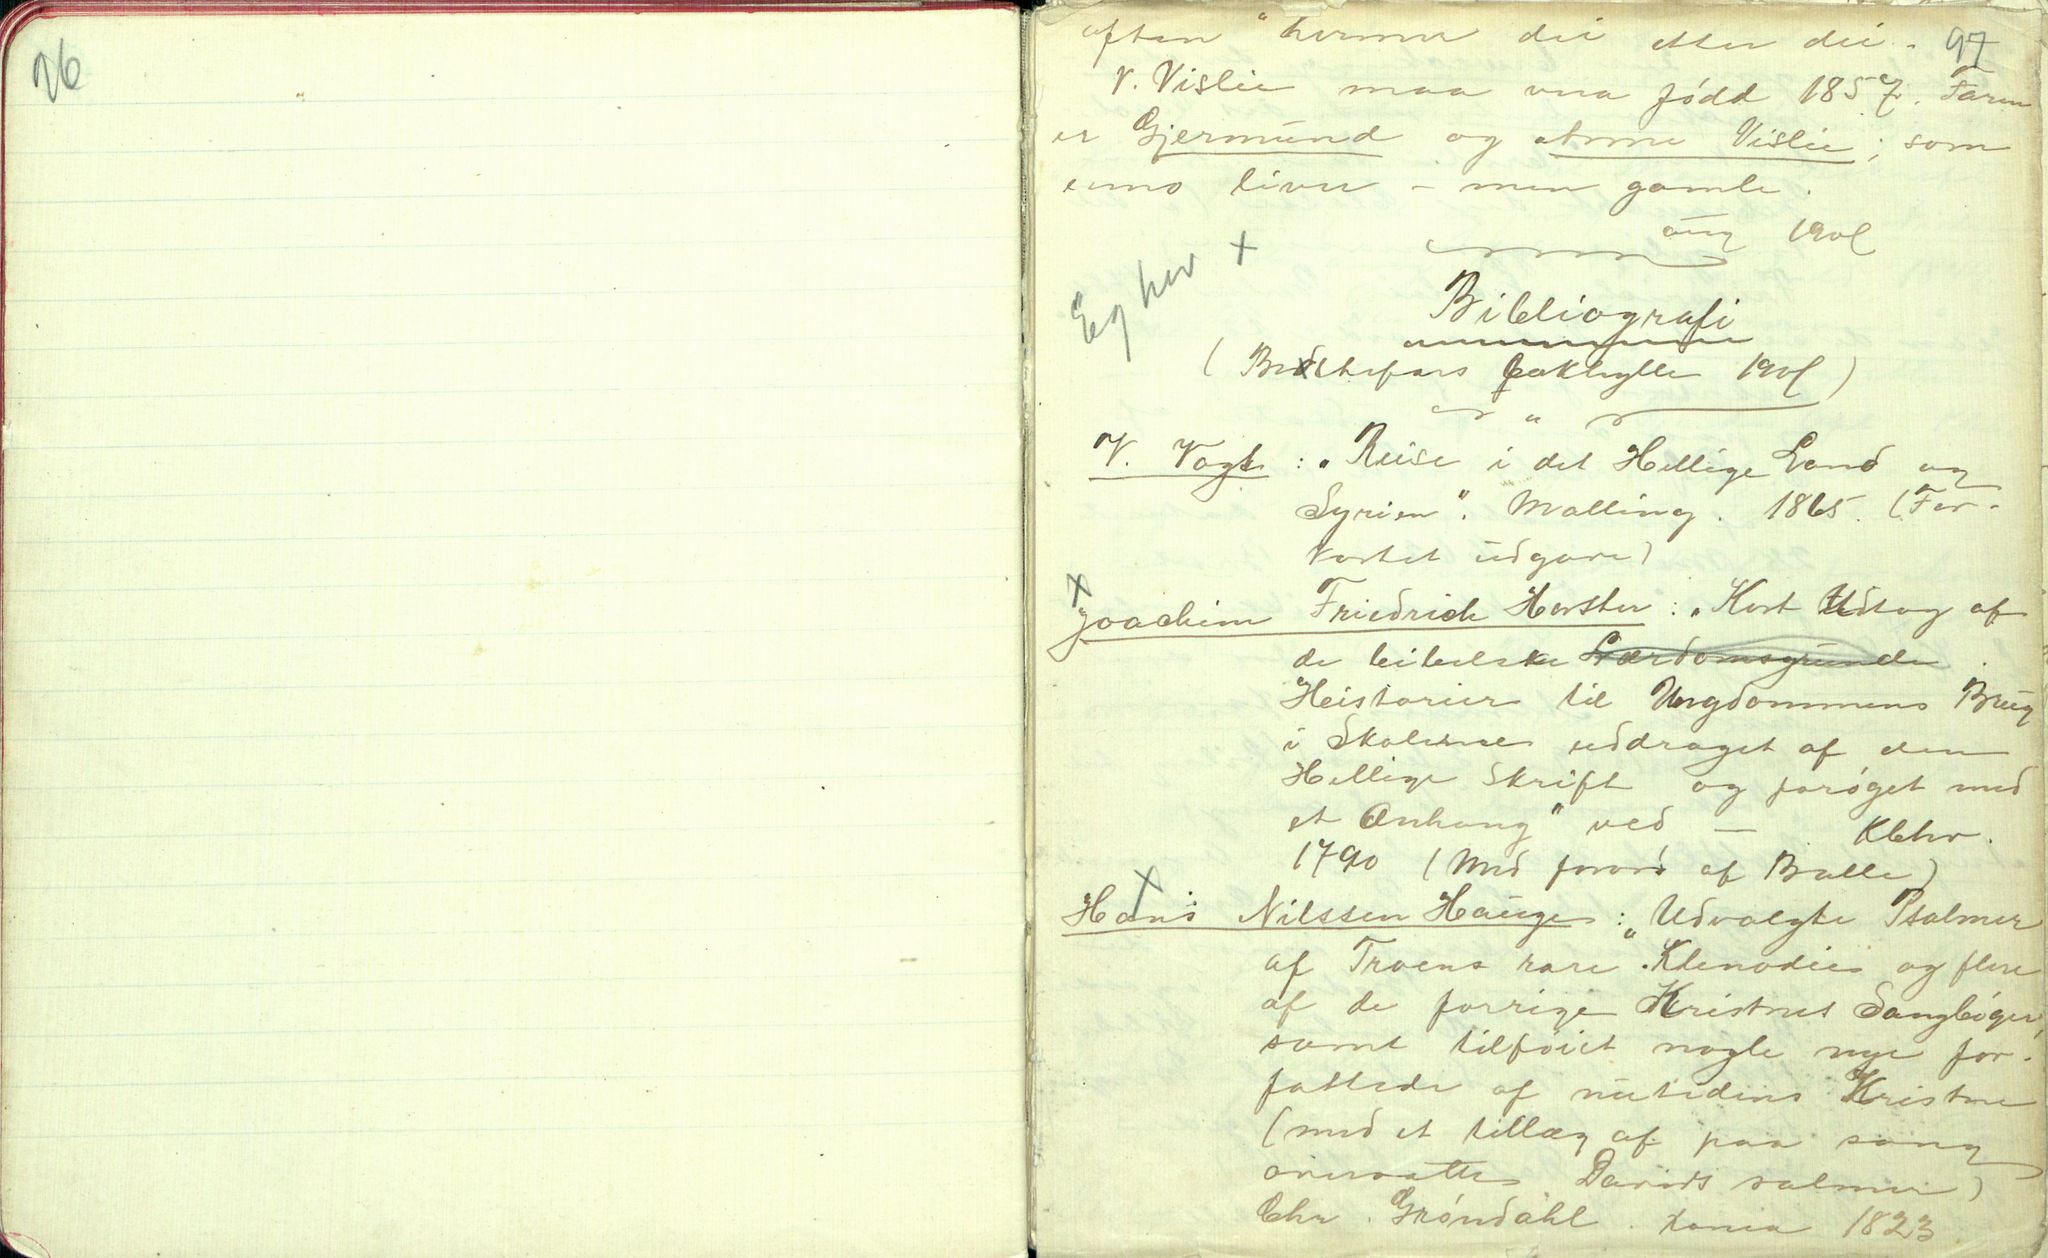 96
97
aftan" hermer dei etter dei.
V. Vislie maa vera fødd 1857. Faren
er Gjermund og Anne Vislie; som
enno liver – men gamle.
aug 1901
Eg hev +
Bibliografi
(Bedstefars Bokhylle 1901)
V. Vogt: "Reise i det Hellige Land og
Syrien". Malling. 1865. (For-
kortet udgave)
x
Joachim Friedrich Horster: "Kort Udtog af
de bibelske Lærdomsgrunde
Heistorier til Ungdommens Brug
i Skolerne uddraget af den
Hellige Skrift og forøget med
et Anhang" ved — Kbhv.
1790 (Med forord af Balle)
x
Hans Nilssen Hauge: "Udvalgte Psalmer
af Troens rare Klenodie og flere
af de forrige Kristnes Sangbøger,
samt tilføiet nogle nye for-
fattede af nutidens Kristne
(med et tillæg af paa sang
oversatte Davids salmer)
Chr. Grøndahl. Xania 1823